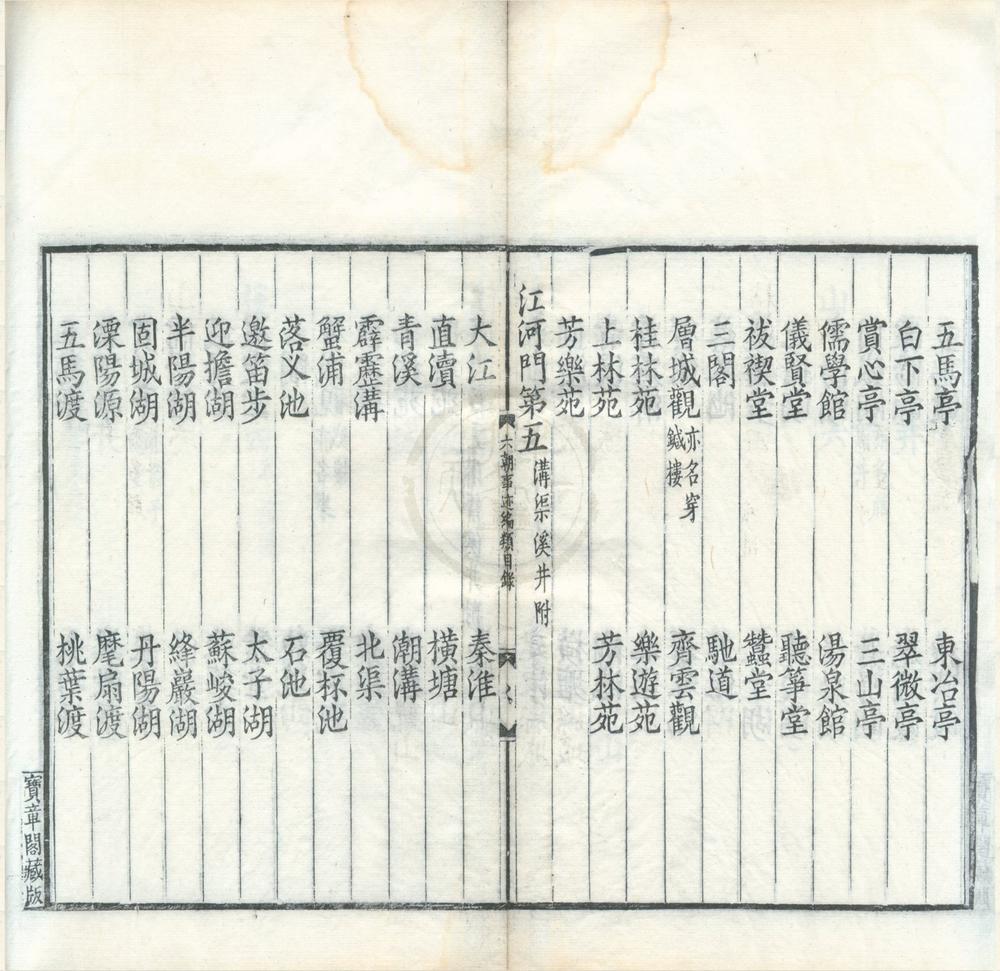 五馬亭　東冶亭
白下亭　翠微亭
賞心亭　三山亭
儒學館　湯泉館
儀賢堂　聽箏堂
祓禊堂　蠶堂
三閣　馳道
層城觀亦名穿鍼樓　齊雲觀
桂林苑　樂遊苑
上林苑　芳林苑
芳樂苑
江河門第五溝渠溪井附
六朝事迹編類目錄
大江　秦淮
直瀆　橫塘
青溪　潮溝
霹靂溝　北渠
蟹浦　覆杯池
落义池　石池
邀笛步　太子湖
迎擔湖　蘇峻湖
半陽湖　絳巖湖
固城湖　丹陽湖
溧陽源　麾扇渡
五馬渡　桃葉渡
寶章閣藏版